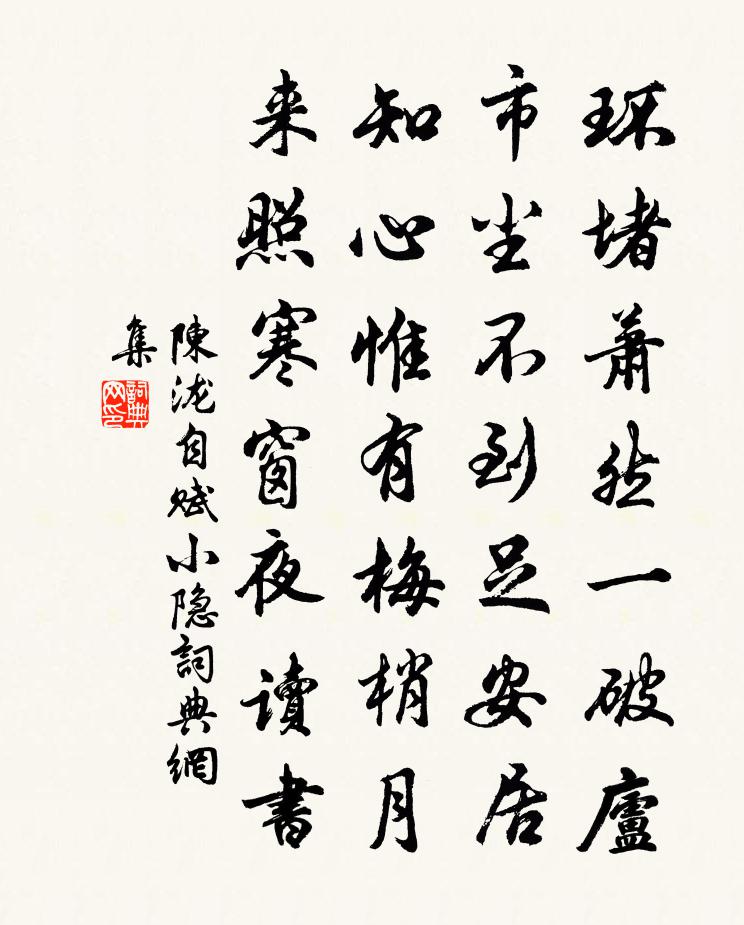 环堵蕭然一破廬
市尘不到足安居
知心惟有梅梢月
来照寒窗夜讀書
陳泷自賦小隐詞典網
集
詞典网印